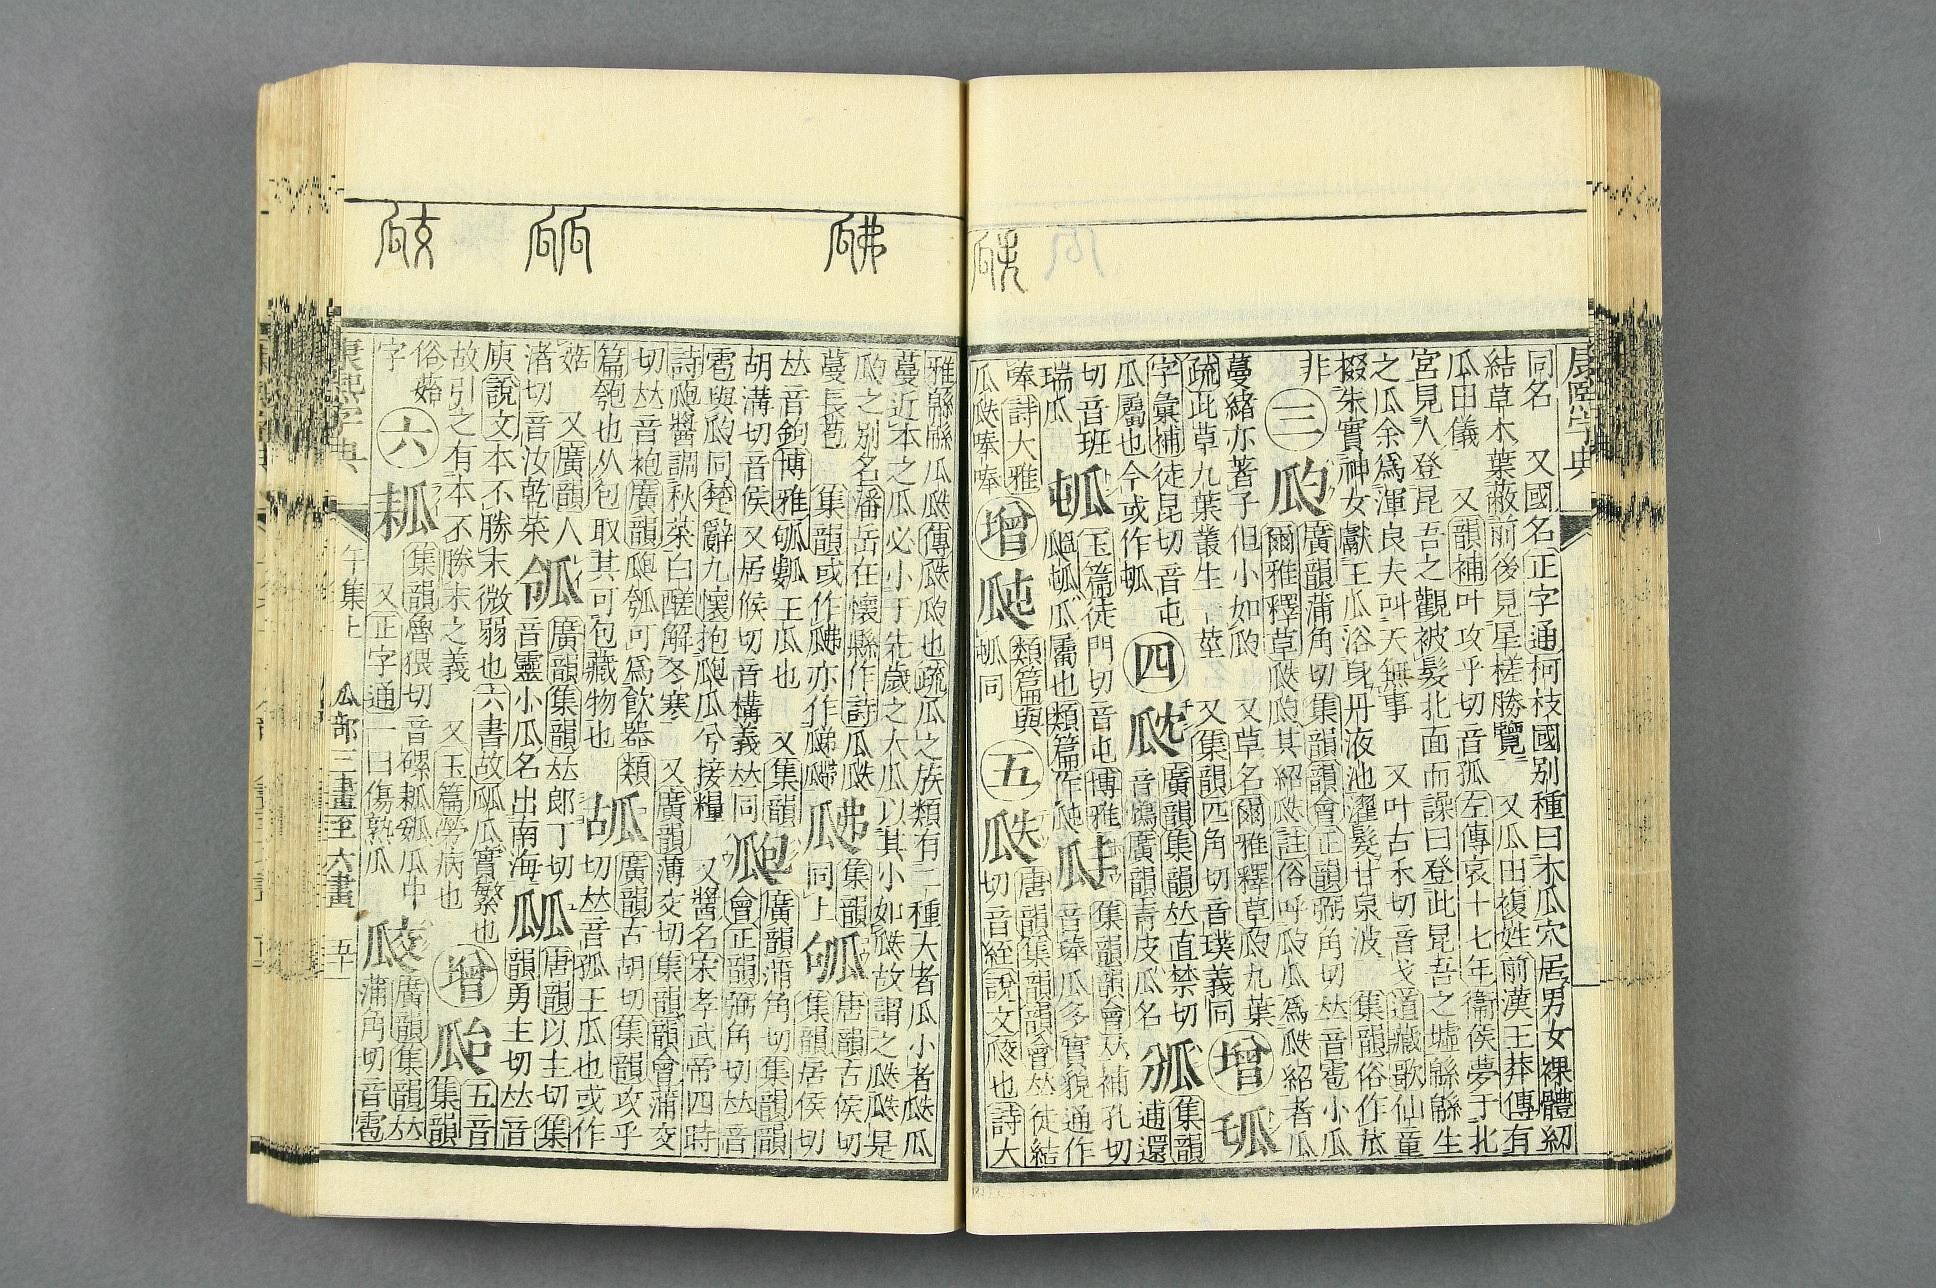 康熙字典
同名 又國名正字通柯枝國别種曰木瓜穴居男女裸體紉
結草木葉蔽前後見星槎勝覽 又瓜田複姓前漢王莽傳有
瓜田儀 又韻補叶攻乎切音孤左傳哀十七年衞侯夢于北
宮見人登昆吾之觀被髮北面而譟曰登此昆吾之墟緜緜生
之瓜余爲渾良夫叫天無事 又叶古禾切音戈道藏歌仙童
掇朱實神女獻玉瓜浴身丹液池濯髮甘泉波 集韻俗作苽
非 三 瓝 廣韻蒲角切集韻韻會正韻弼角切𠀤音雹小瓜
爾雅釋草瓞瓝其紹瓞註俗呼瓝瓜爲瓞紹者瓜
蔓緒亦著子但小如瓝 又草名爾雅釋草瓝九葉
疏此草九葉叢生一莖 又集韻匹角切音璞義同 增
字彙補徒昆切音屯 四 廣韻集韻𠀤直禁切
音鴆廣韻青皮瓜名 集韻逋還
切音班
瓜屬也今或作㼊
玉篇徒門切音屯博雅
瓜屬也類篇作
瑞瓜
集韻韻會𠀤補孔切
音琫瓜多實貌通作
唪詩大雅
瓜瓞唪唪 增 類篇與
㼊同 五 瓞 唐韻集韻韻會𠀤徒結
切音絰說文㼎也詩大
雅緜緜瓜瓞傳瓞瓝也疏瓜之族類有二種大者瓜小者瓞瓜
蔓近本之瓜必小于先歲之大瓜以其小如瓝故謂之瓞瓞是
瓝之别名潘岳在懷縣作詩瓜瓞
蔓長苞 集韻或作
集韻
同上 瓠 唐韻古侯切
集韻居侯切
𠀤音鉤博雅 王瓜也 又集韻
胡溝切音侯 又居候切音構義𠀤同 瓟 廣韻蒲角切集韻韻
會正韻弼角切𠀤音
雹與瓝同楚辭九懷抱瓟瓜兮接糧 又醬名宋孝武帝四時
詩瓟醬調秋菜白醝解冬寒 又廣韻薄交切集韻韻會蒲交
切𠀤音袍廣韻瓟瓠可爲飲器類
篇匏也从包取其可包藏物也 㼋 廣韻古胡切集韻攻乎
切𠀤音孤王瓜也或作
菇 又廣韻人
渚切音汝乾菜 瓴 廣韻集韻𠀤郎丁切
音靈小瓜名出南海 㼌 唐韻以主切集
韻勇主切𠀤音
庾說文本不勝末微弱也六書故㼌瓜實繁也
故引之有本不勝末之義 又玉篇勞病也 增 瓵 五音
集韻
俗菭
字 六 集韻魯猥切音磥 瓜中
又正字通一曰傷熟瓜 㼎 廣韻集韻𠀤
蒲角切音雹
康熙字典 午集上 瓜部三畫至六畫 五十